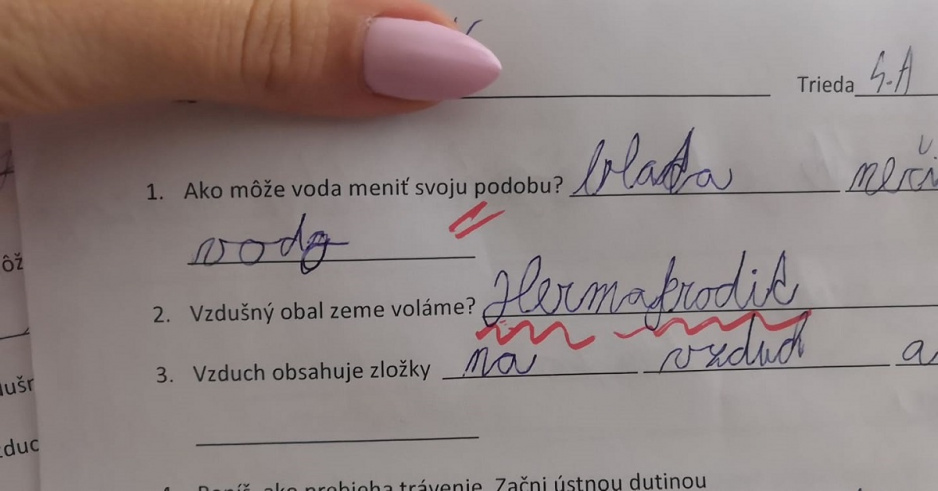 Trieda 4.A
1. Ako môže voda meniť svoju podobu? blata
voda
2. Vzdušný obal zeme voláme? Hermafrodit
3. Vzduch obsahuje zložky na vzduch a
ako prebieha trávenie. Začni ústnou dutinou